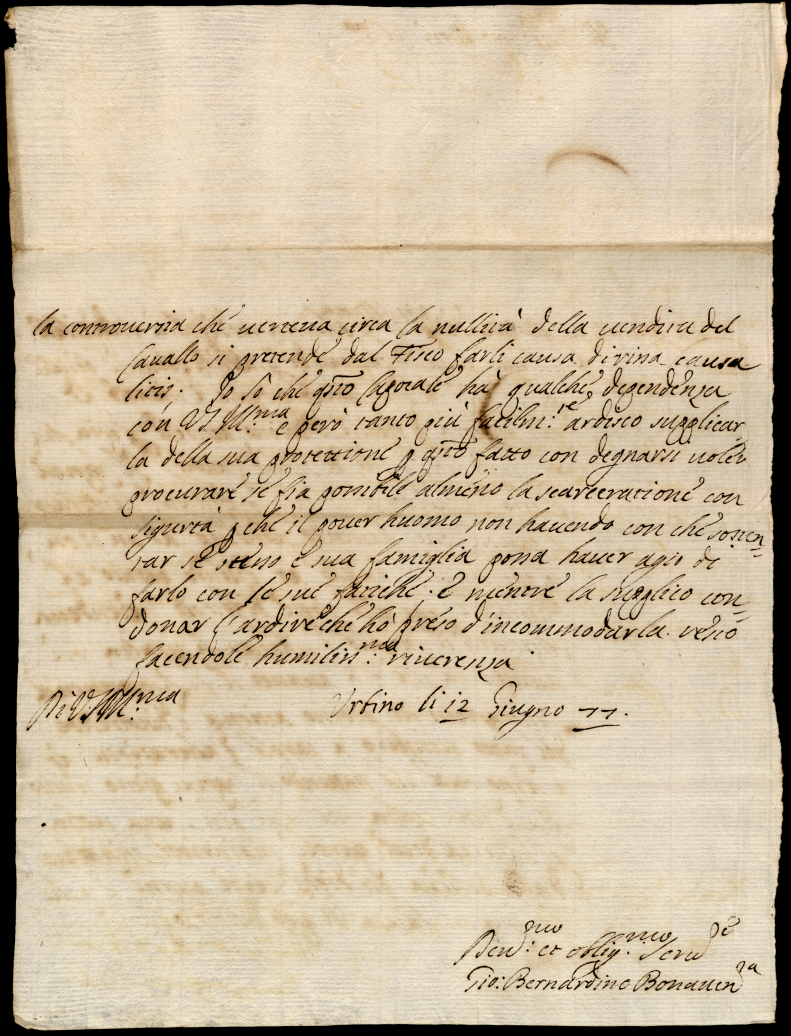 la controuersia che uerteua circa la nullità della uendita del
Cauallo si pretende dal Fisco farli causa di uina causa
litis. Io sò che qsto Caporale hà qualche dependenza
con VS Ill.ma e però tanto più facilm.te ardisco supplicar
la della sua protettione p qsto fatto con degnarsi uoler
procurare se sia possibile almeno la scarceratione con
sigurtà p che il pouer huomo non hauendo con che sosten=
tar se stesso e sua famiglia possa hauer agio di
farlo con le sue fatiche. E mentre la supplico con=
donar l'ardire che hò preso d'incommodarla resto
facendole humiliss.ma riuerenza
Di VS Ill.ma Urbino li 12 Giugno 77.
Deu.mo et oblig.mo Seru.re
Gio: Bernardino Bonauen.ra